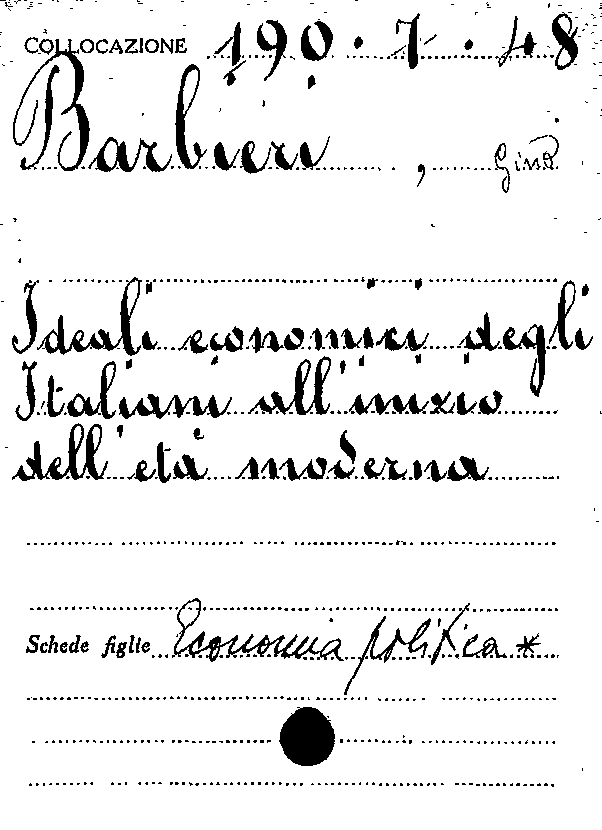 COLLOCAZIONE 190.7.48
Barbieri, Gino
Ideali economici degli
Italiani all'inizio
dell'età moderna
Schede figlie Economia politica *